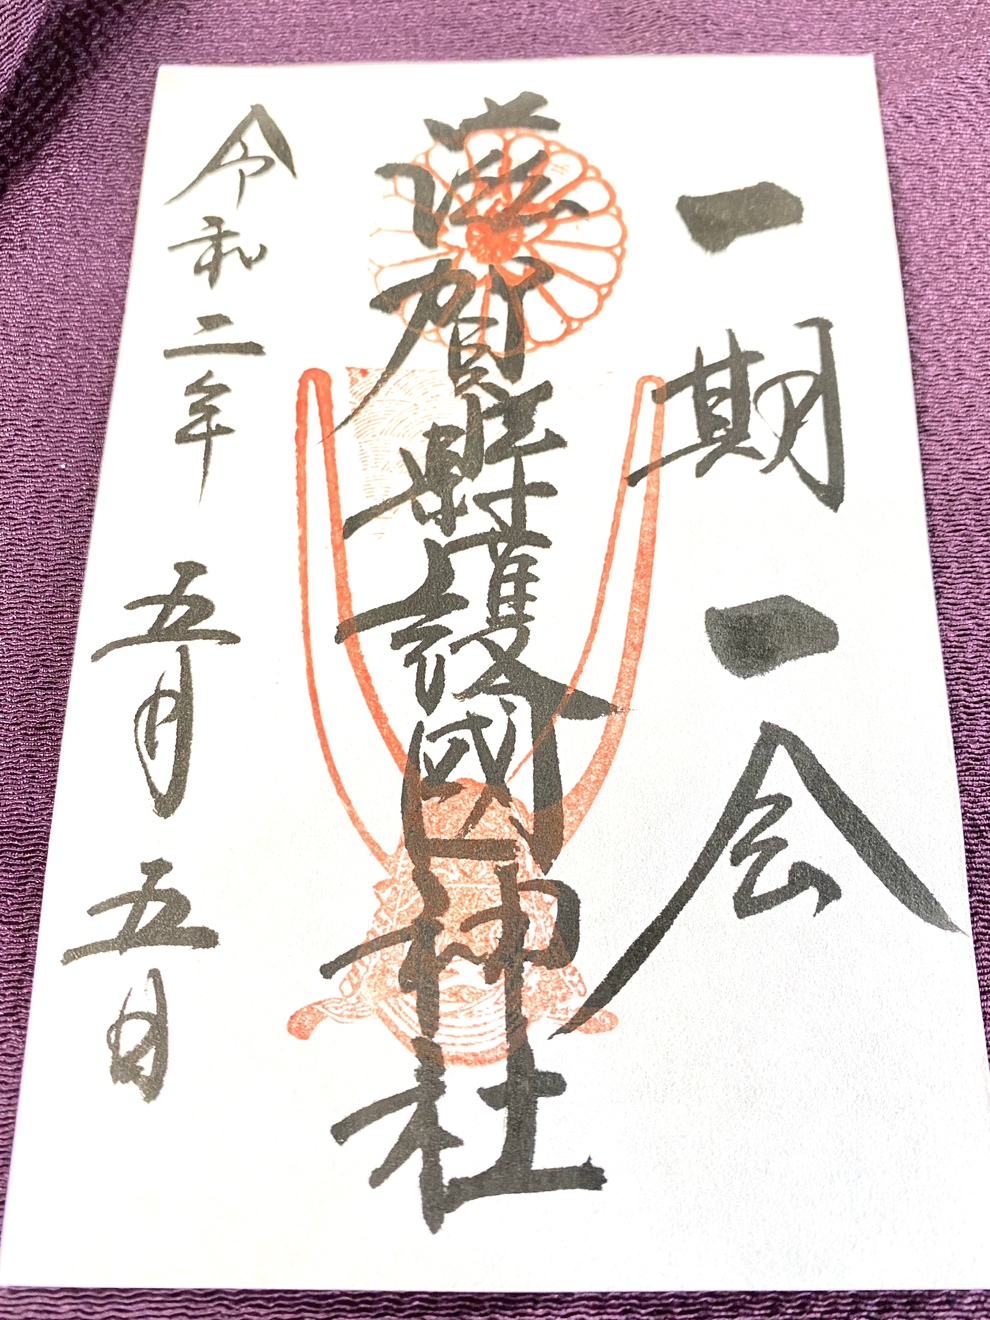 一期一会
滋賀縣護國神社
令和二年五月五日